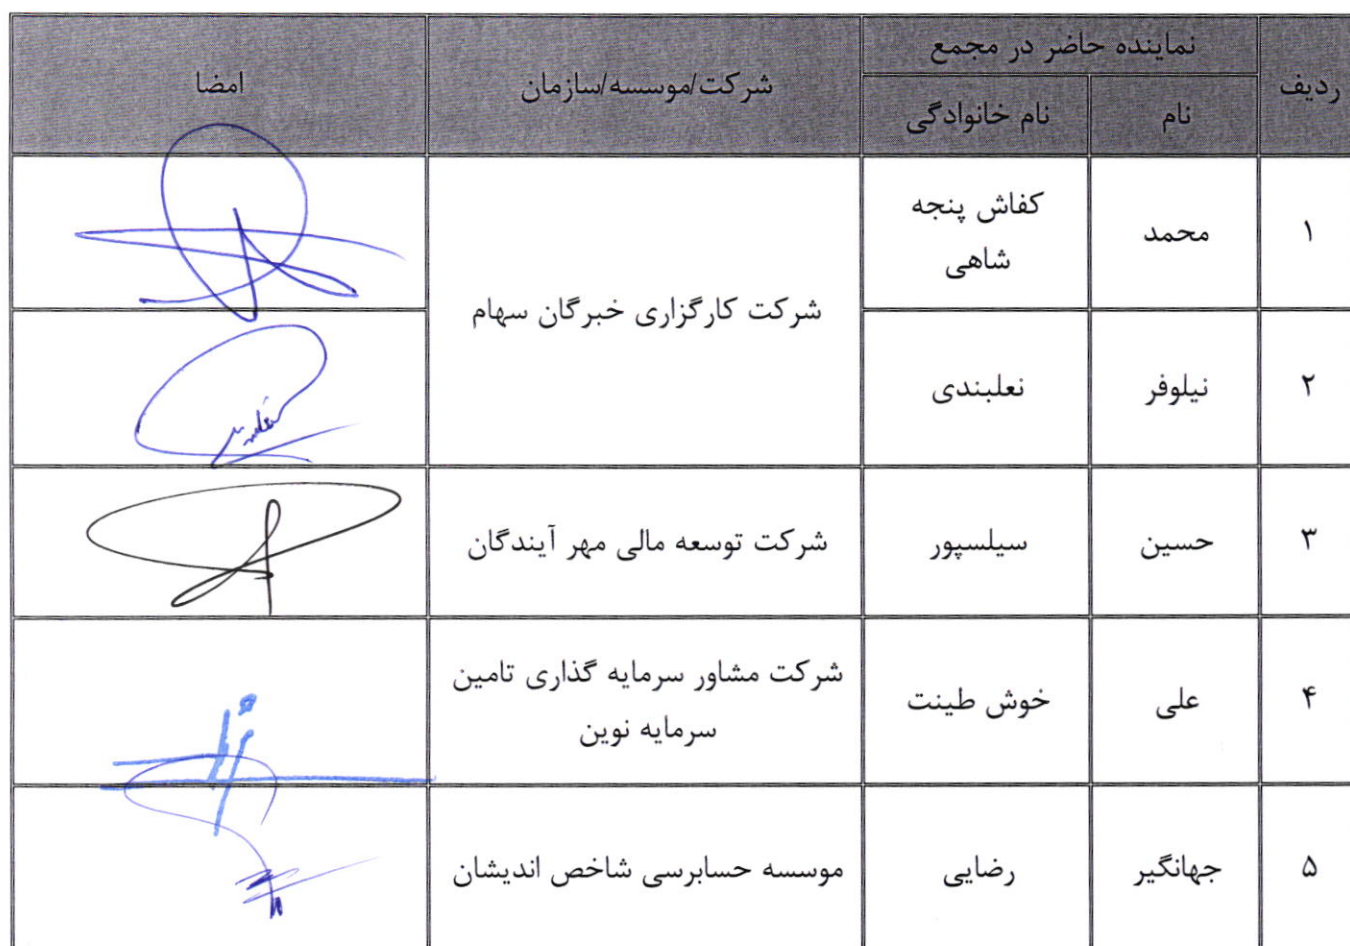 ردیف
نماینده حاضر در مجمع
نام
نام خانوادگی
شرکت/موسسه/سازمان
امضا
۱
محمد
کفاش پنجه
شاهی
شرکت کارگزاری خبرگان سهام
۲
نیلوفر
نعلبندی
۳
حسین
سیلسپور
شرکت توسعه مالی مهر آیندگان
۴
علی
خوش طینت
شرکت مشاور سرمایه گذاری تامین
سرمایه نوین
۵
جهانگیر
رضایی
موسسه حسابرسی شاخص اندیشان